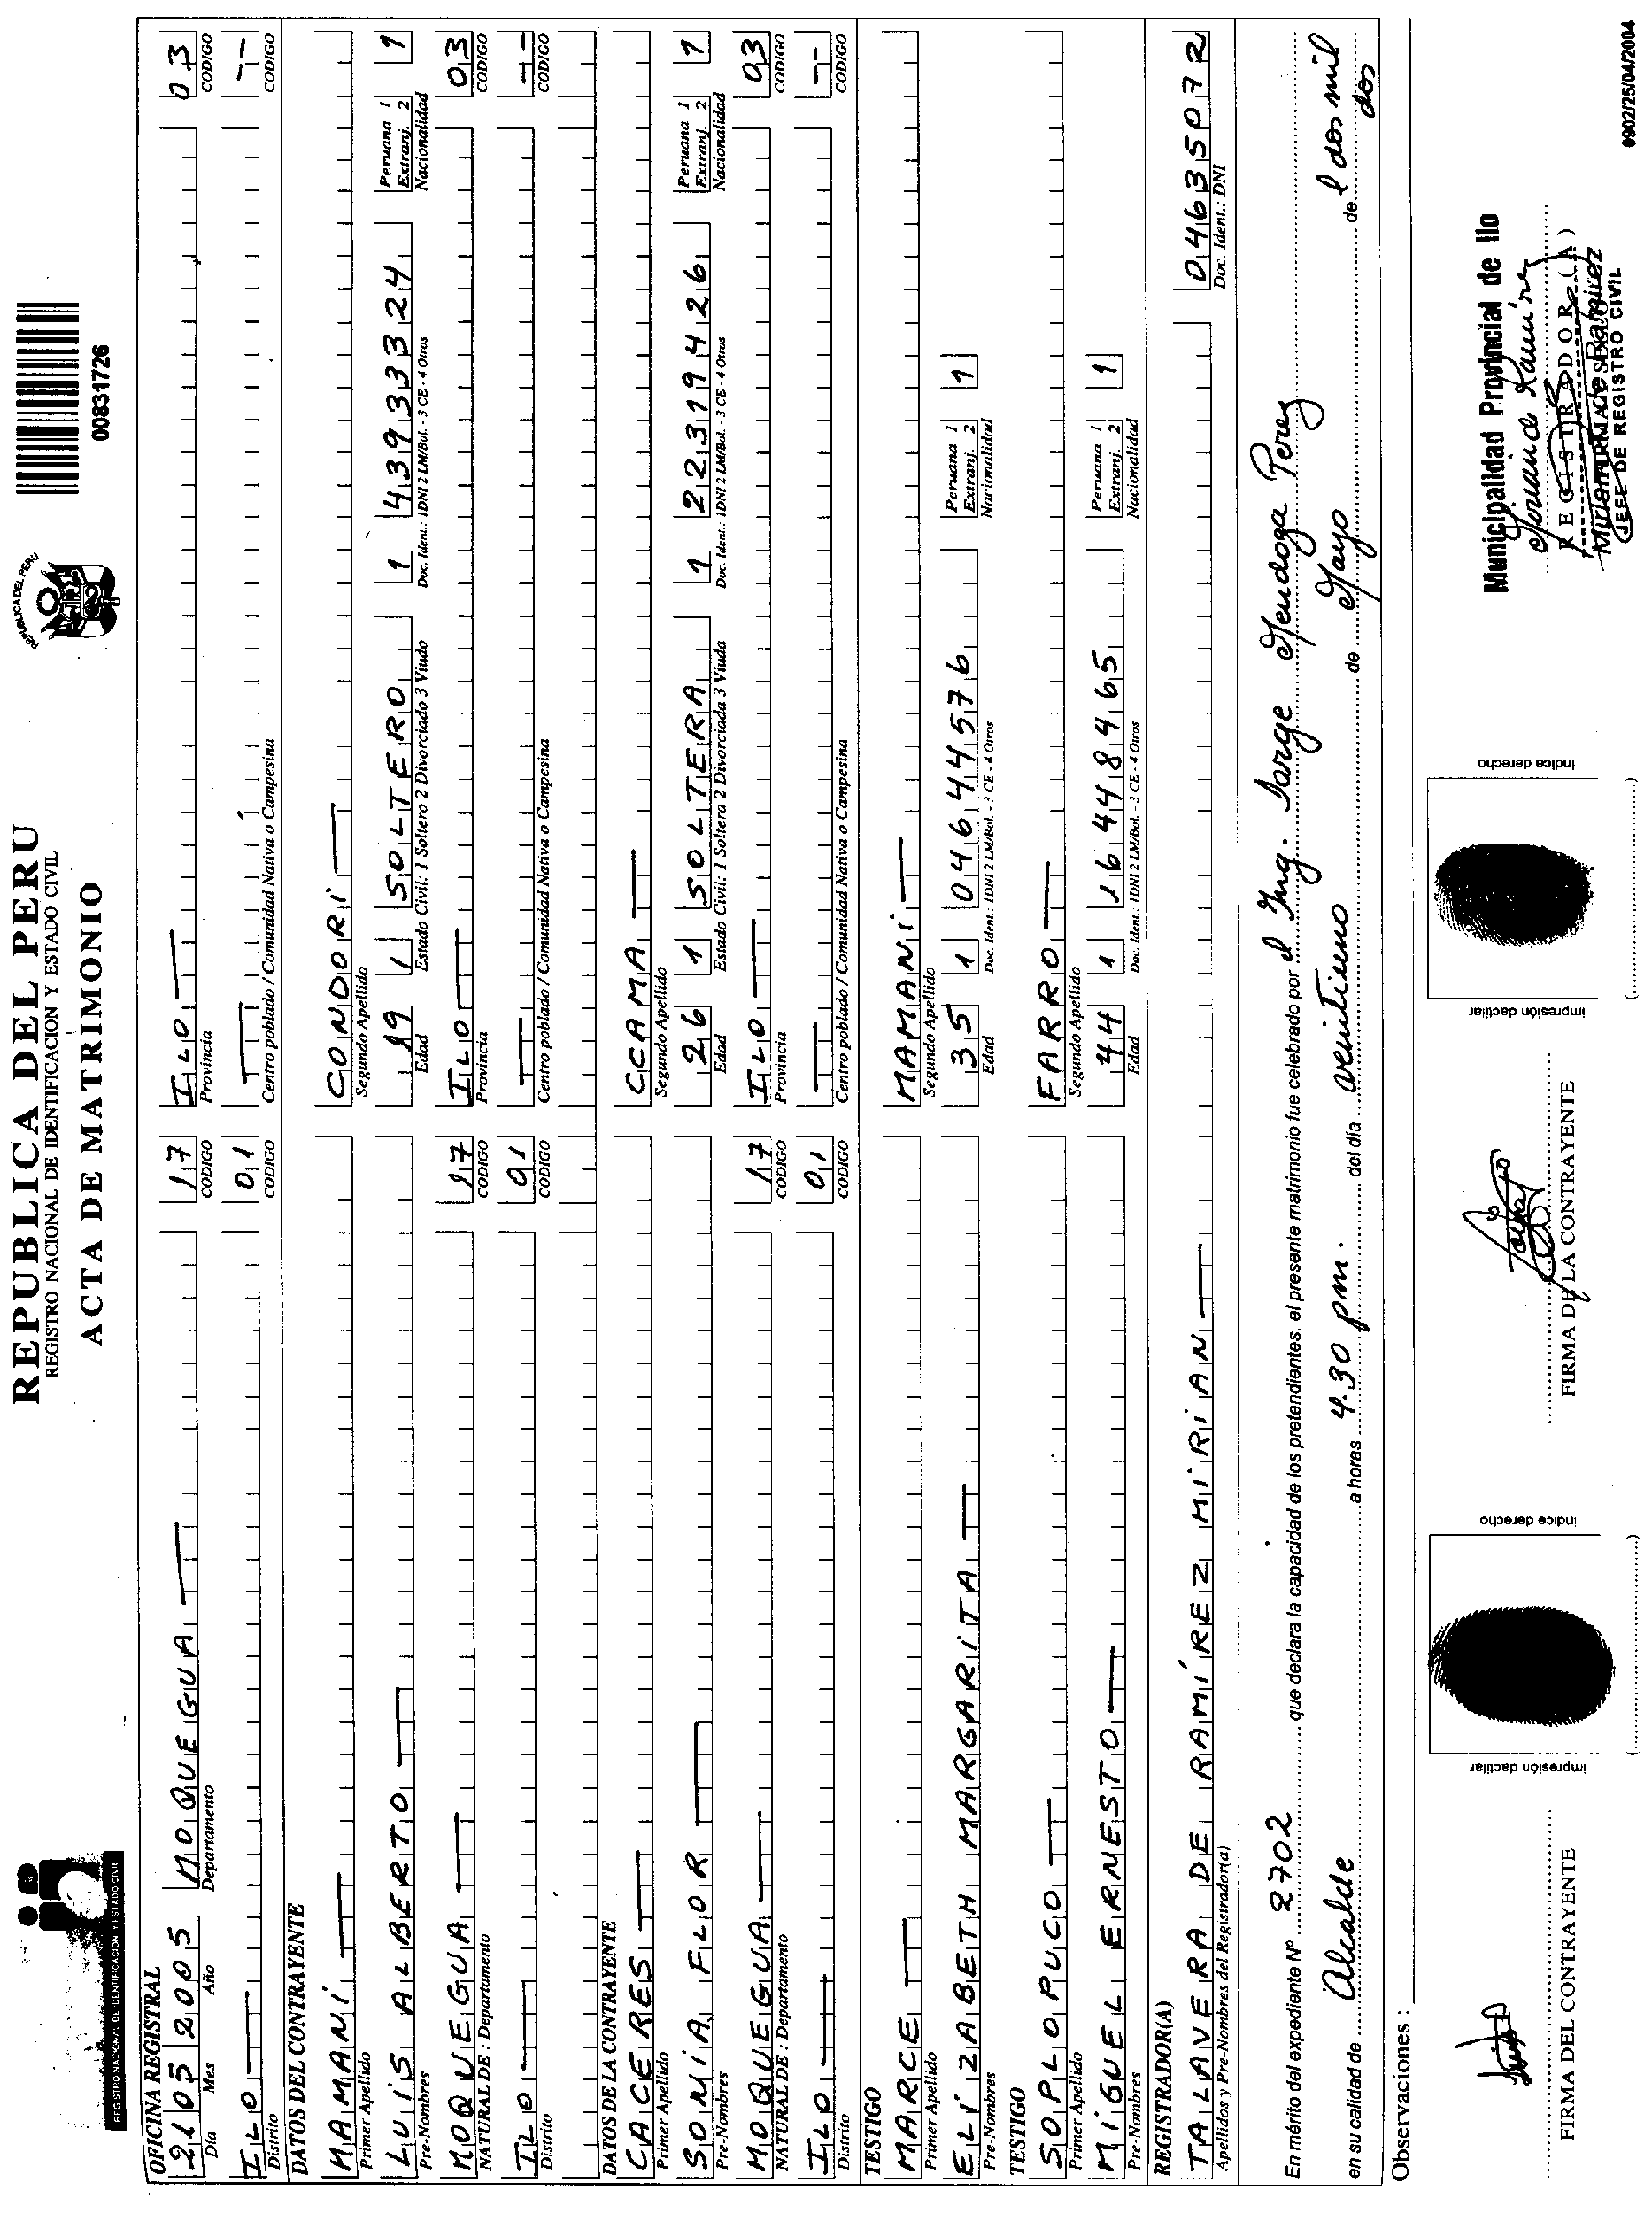 REPUBLICA DEL PERU
REGISTRO NACIONAL DE IDENTIFICACION Y ESTADO CIVIL
ACTA DE MATRIMONIO
REGISTRO NACIONAL DE IDENTIFICACION Y ESTADO CIVIL
REPUBLICA DEL PERU
00831726
OFICINA REGISTRAL
21 05 2005 MOQUEGUA 17 ILO 03
Día Mes Año Departamento CODIGO Provincia CODIGO
ILO 01 --
Distrito CODIGO Centro poblado / Comunidad Nativa o Campesina CODIGO
DATOS DEL CONTRAYENTE
MAMANI CONDORI
Primer Apellido Segundo Apellido
LUIS ALBERTO 19 1 SOLTERO 1 43933324 Peruana 1 Extranj. 2 1
Pre-Nombres Edad Estado Civil: 1 Soltero 2 Divorciado 3 Viudo Doc. Ident.: 1DNI 2 LM/Bol. - 3 CE - 4 Otros Nacionalidad
MOQUEGUA 17 ILO 03
NATURAL DE : Departamento CODIGO Provincia CODIGO
ILO 01 --
Distrito CODIGO Centro poblado / Comunidad Nativa o Campesina CODIGO
DATOS DE LA CONTRAYENTE
CACERES CCAMA
Primer Apellido Segundo Apellido
SONIA FLOR 26 1 SOLTERA 1 22319426 Peruana 1 Extranj. 2 1
Pre-Nombres Edad Estado Civil: 1 Soltera 2 Divorciada 3 Viuda Doc. Ident.: 1DNI 2 LM/Bol. - 3 CE - 4 Otros Nacionalidad
MOQUEGUA 17 ILO 03
NATURAL DE : Departamento CODIGO Provincia CODIGO
ILO 01 --
Distrito CODIGO Centro poblado / Comunidad Nativa o Campesina CODIGO
TESTIGO
MARCE MAMANI
Primer Apellido Segundo Apellido
ELIZABETH MARGARITA 35 1 04644576 Peruana 1 Extranj. 2 1
Pre-Nombres Edad Doc. Ident.: 1DNI 2 LM/Bol. - 3 CE - 4 Otros Nacionalidad
TESTIGO
SOPLOPUCO FARRO
Primer Apellido Segundo Apellido
MIGUEL ERNESTO 44 1 16448465 Peruana 1 Extranj. 2 1
Pre-Nombres Edad Doc. Ident.: 1DNI 2 LM/Bol. - 3 CE - 4 Otros Nacionalidad
REGISTRADOR(A)
TALAVERA DE RAMÍREZ MIRIAN 04635072
Apellidos y Pre-Nombres del Registrador(a) Doc. Ident.: DNI
En mérito del expediente Nº 2702 que declara la capacidad de los pretendientes, el presente matrimonio fue celebrado por el Ing. Jorge Mendoza Perez
en su calidad de Alcalde a horas 4.30 pm. del día veintiuno de Mayo de l dos mil
dos
Observaciones :
Municipalidad Provincial de Ilo
REGISTRADOR (A)
JEFE DE REGISTRO CIVIL
FIRMA DEL CONTRAYENTE impresión dactilar índice derecho FIRMA DE LA CONTRAYENTE impresión dactilar índice derecho
0902/25/04/2004